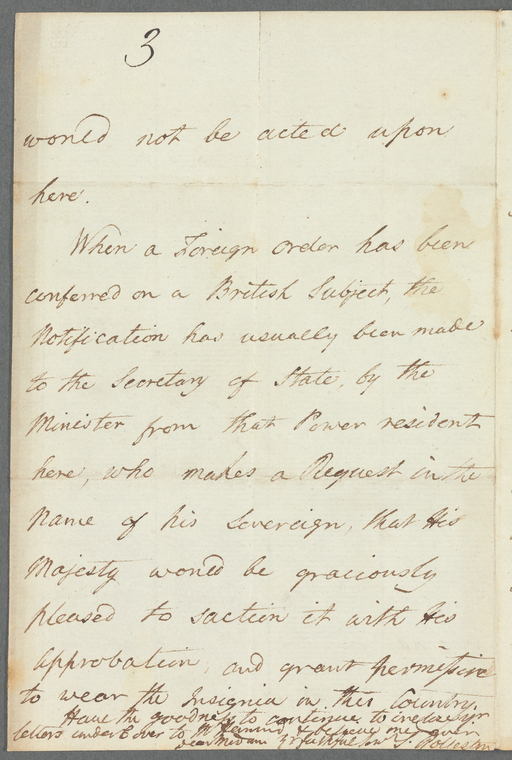 3
would not be acted upon
here.
When a Foreign order has been
conferred on a British Subject, the
Notification has usually been made
to the Secretary of State, by the
Minister from that Power resident
here, who makes a Request in the
Name of his Sovereign, that His
Majesty would be graciously
pleased to saction it with His
Approbation, and grant permission
to wear the Insignia in this Country.
Have the goodness to continue to inclose yr
letters under Cover to Mr & believe me ever
Dear Madam yr faithful